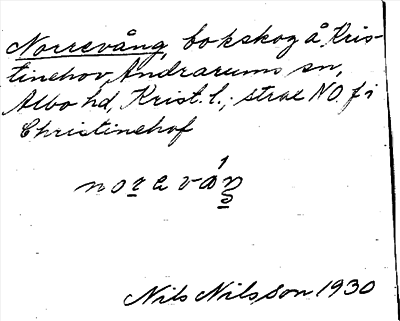 Norrevång, bokskog å Kris-
tinehov, Andrarums sn,
Albo hd, Krist. l.; strax NO f i
Christinehof
norevåŋ
Nils Nilsson 1930